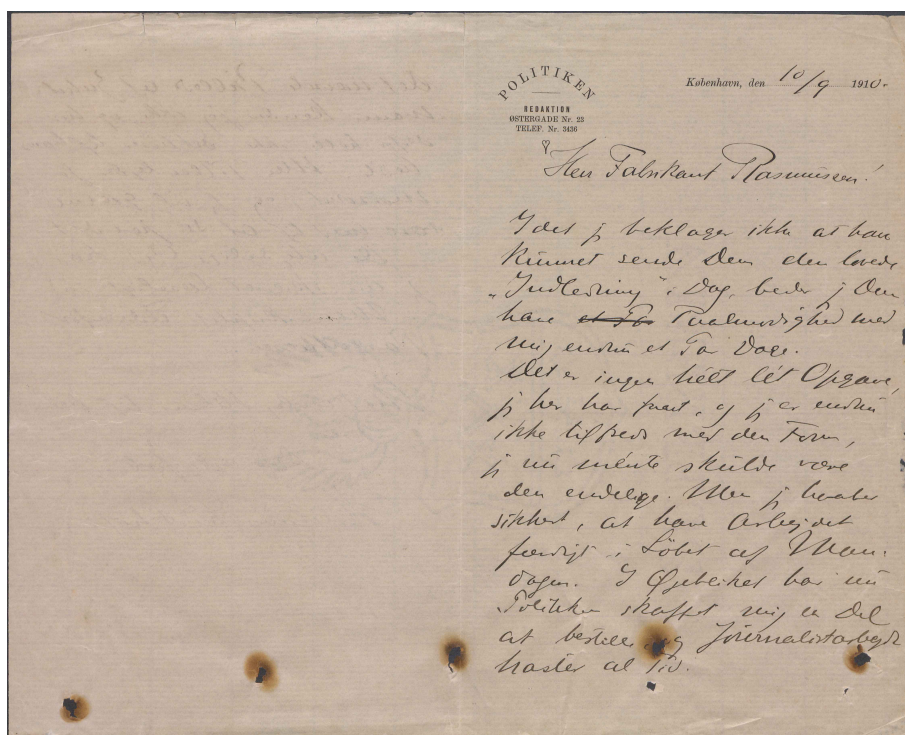 POLITIKEN
REDAKTION
ØSTERGADE Nr. 23
TELEF. Nr. 3436
København, den 10/9 1910.
Herr Fabrikant Rasmussen!
Idet jg beklager ikke at have
kunnet sende Dem den lovede
"Indledning" i Dag, beder jg Dem
have et Par Taalmodighed med
mig endnu et Par Dage.
Det er ingen hélt lét Opgave,
jg her har faaet, og jg er endnu
ikke tilfreds med den Form,
jg nu ménte skulde være
den endelige. Men jg haaber
sikkert, at have Arbejdet
færdigt i Løbet af Man-
dagen. I Øjeblikket har nu
Politiken skaffet mig en Del
at bestille, og Journalistarbejde
haster al Tid.